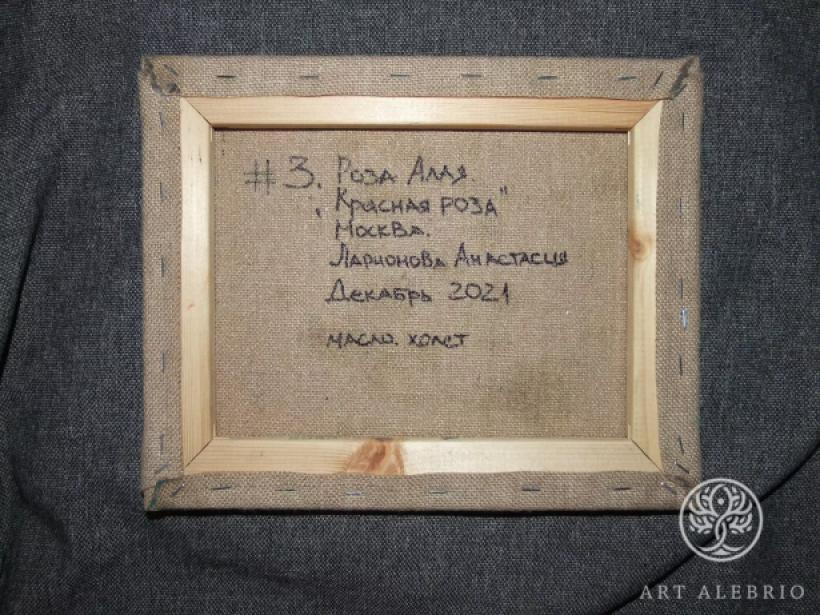 #3. Роза Алая.
„Красная роза"
Москва.
Ларионова Анастасия
Декабрь 2021
масло. холст
ART ALEBRIO